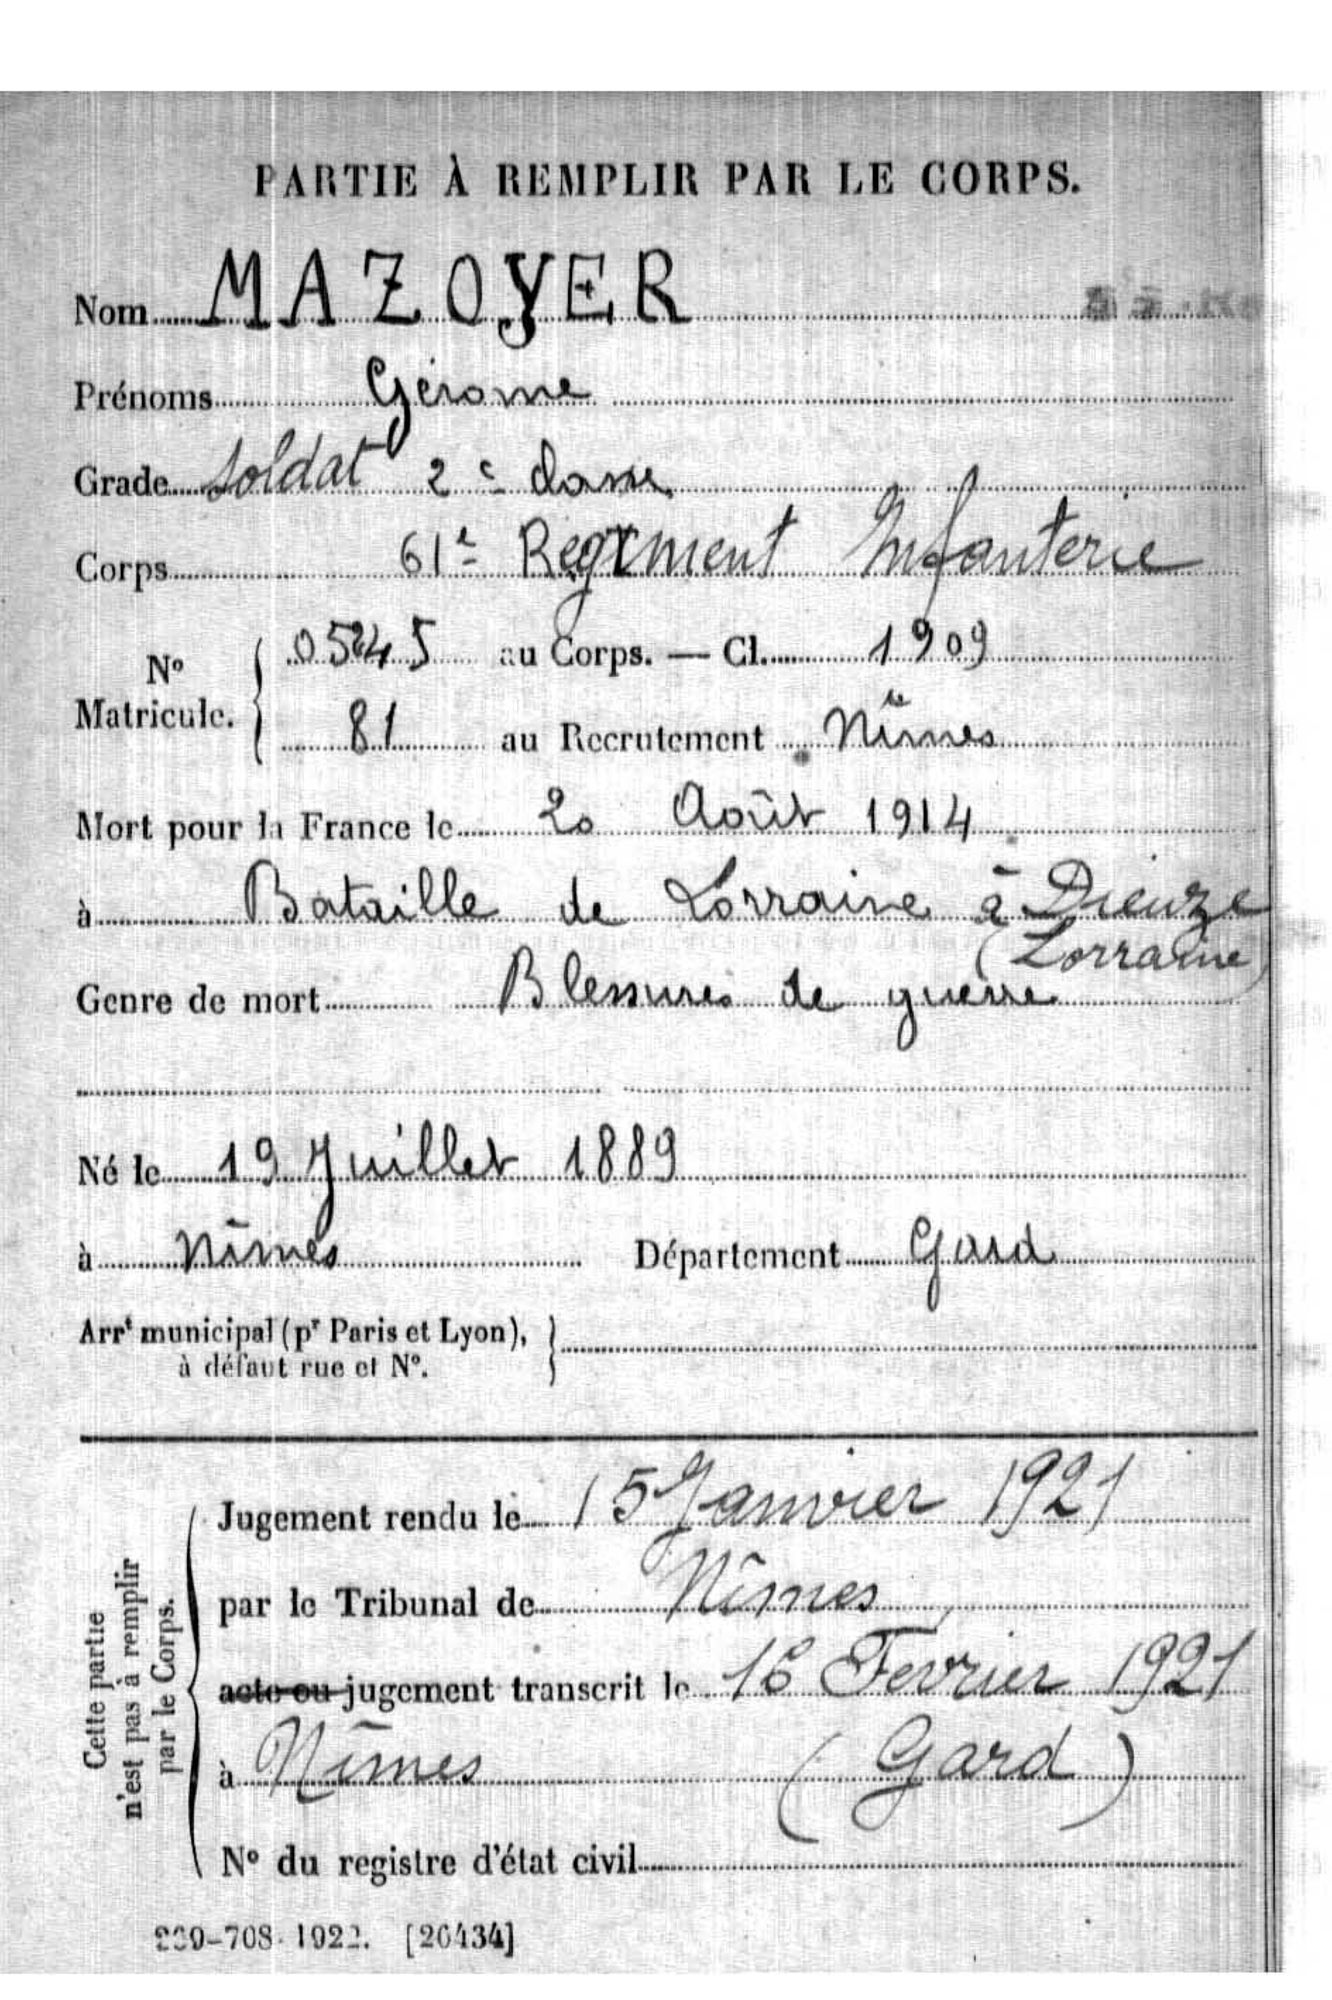 PARTIE À REMPLIR PAR LE CORPS.
Nom MAZOYER
Prénoms Gérome
Grade Soldat 2e classe
Corps 61e Régiment Infanterie
N° Matricule. { 05245 au Corps. — Cl. 1909
81 au Recrutement Nîmes
Mort pour la France le 20 Août 1914
à Bataille de Lorraine à Dieuze
(Lorraine)
Genre de mort Blessures de guerre
Né le 19 Juillet 1889
à Nîmes Département Gard
Arrt municipal (pr Paris et Lyon), }
à défaut rue et N°.
Cette partie
n'est pas à remplir
par le Corps.
Jugement rendu le 15 Janvier 1921
par le Tribunal de Nîmes
acte ou jugement transcrit le 16 Fevrier 1921
à Nîmes (Gard)
N° du registre d'état civil
708-1922. [26434]